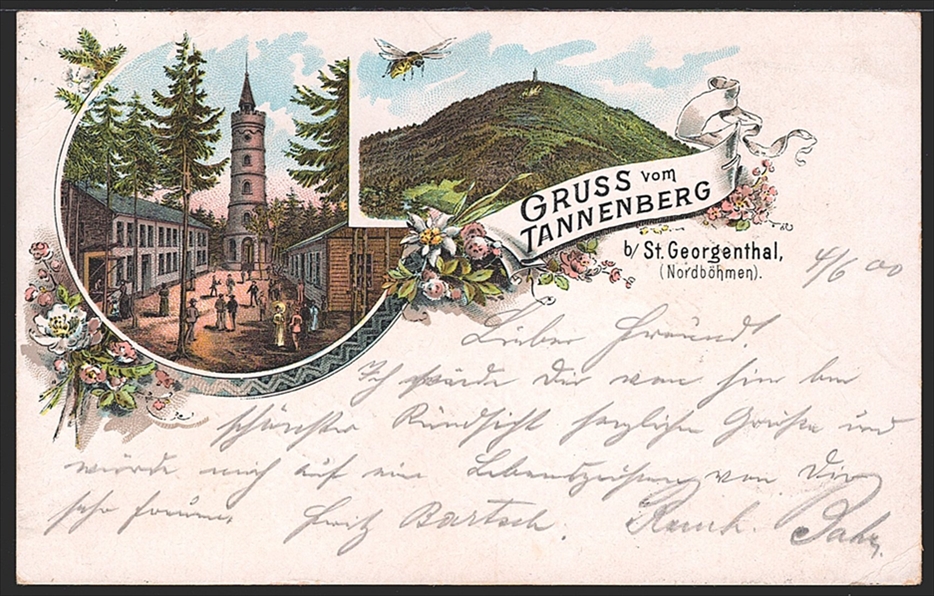 GRUSS vom
TANNENBERG
b/ St. Georgenthal,
(Nordböhmen).
4/6 00
Lieber Freund!
Ich sende Dir von hier bei
schönster Rundsicht herzliche Grüße und
würde mich auf ein Lebenszeichen von Dir
sehr freuen. Fritz Bartsch.